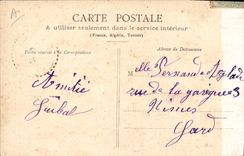 A
CARTE POSTALE
A utiliser seulement dans le service intérieur
(France, Algérie, Tunisie)
Partie réservée à la Correspondance
Adresse du Destinataire
Amitié
Guibal
Melle Fernande
rue de la garrigues 3
Nimes
Gard